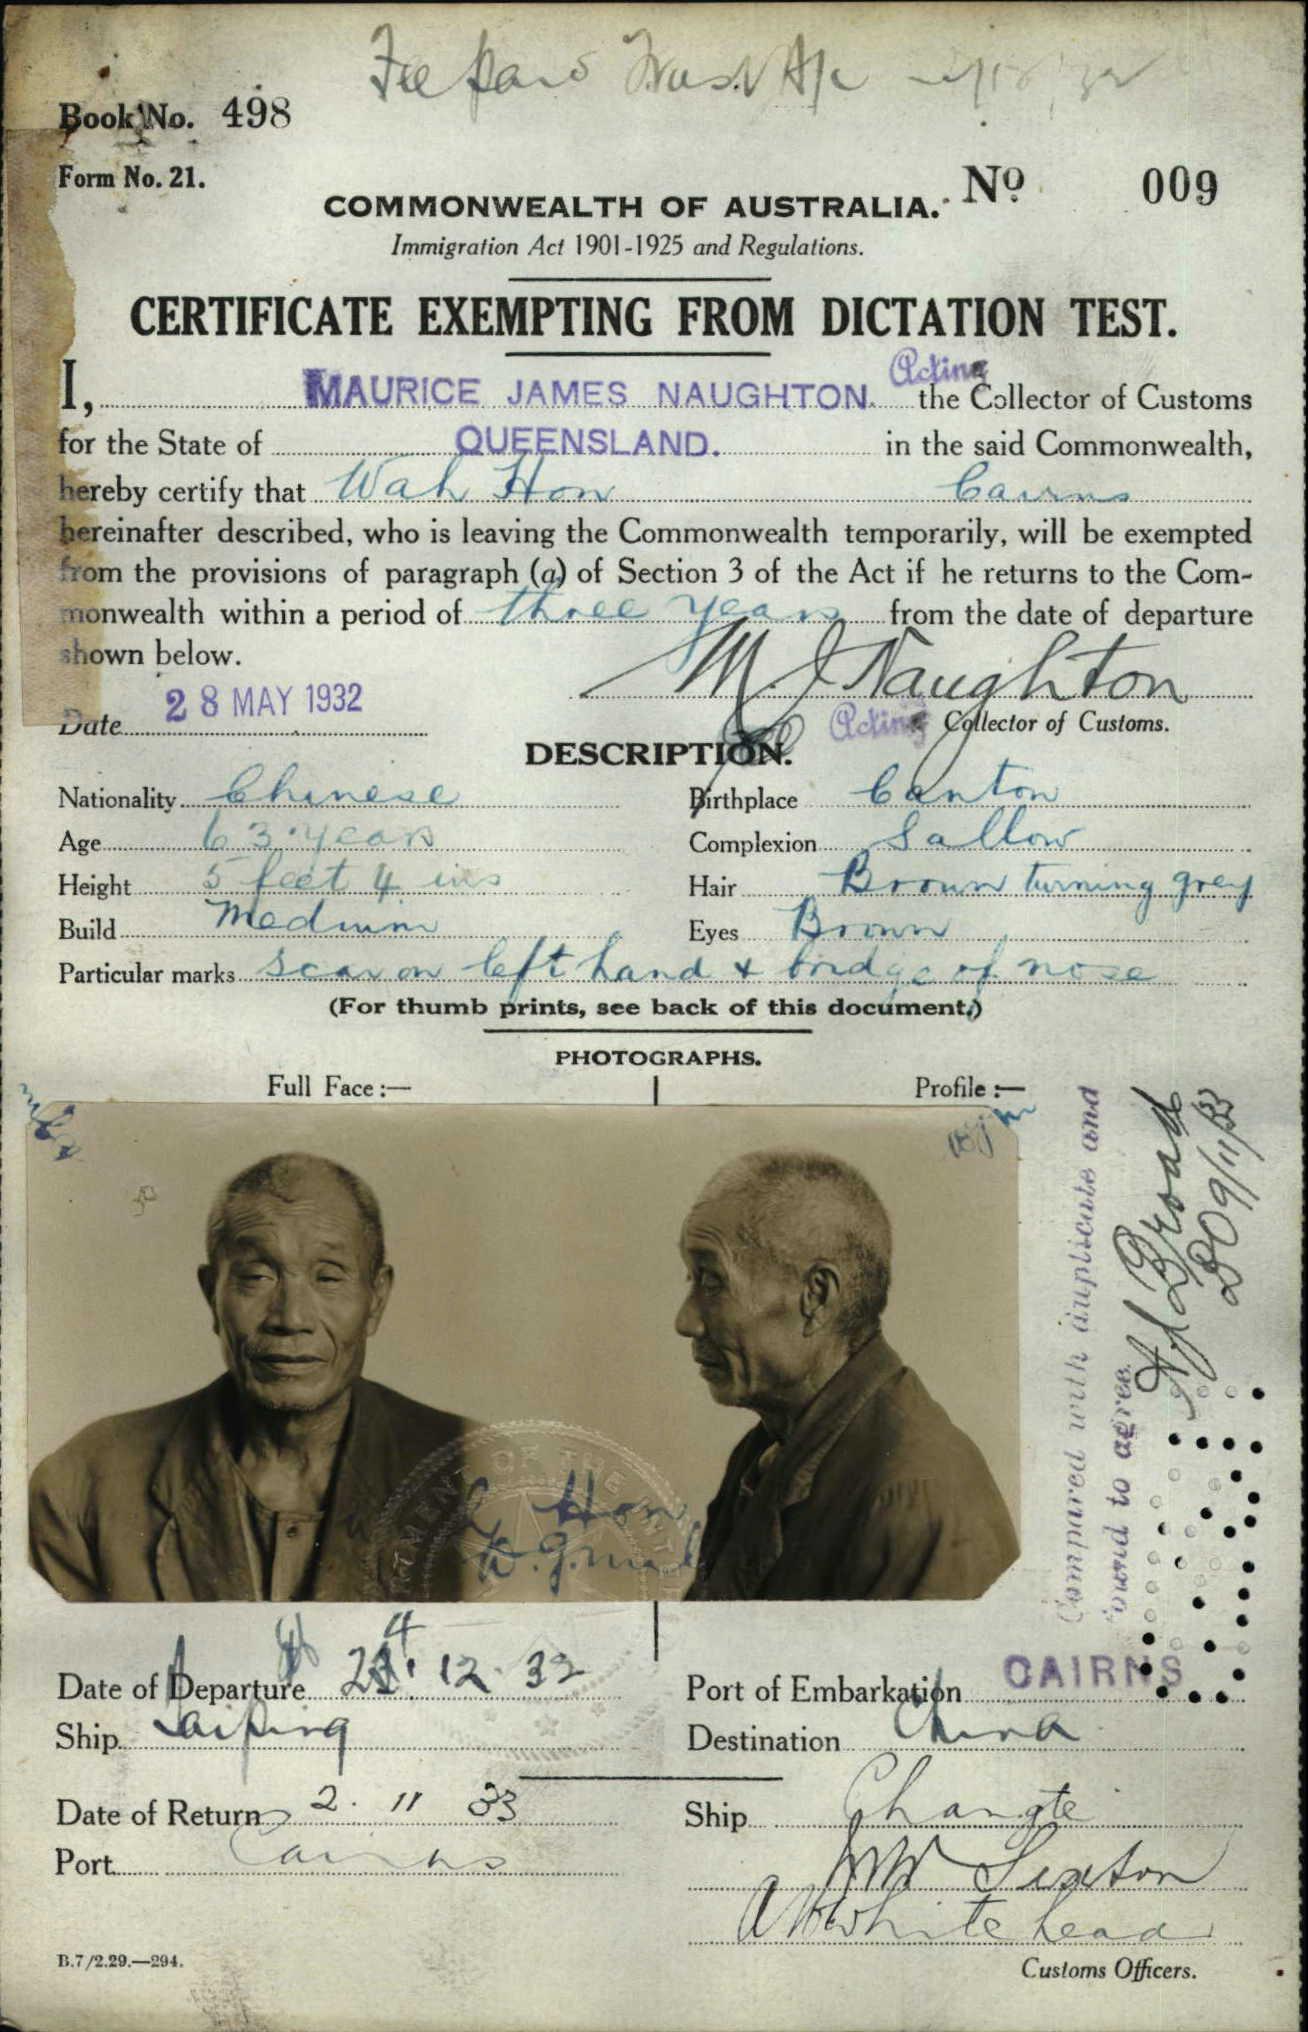 Fee paid Trust A/c
Book No. 498
Form No. 21.
No 009
COMMONWEALTH OF AUSTRALIA.
Immigration Act 1901-1925 and Regulations.
CERTIFICATE EXEMPTING FROM DICTATION TEST.
Acting
I, MAURICE JAMES NAUGHTON. the Collector of Customs
for the State of QUEENSLAND. in the said Commonwealth,
hereby certify that Wah Hon Cairns
hereinafter described, who is leaving the Commonwealth temporarily, will be exempted
from the provisions of paragraph (a) of Section 3 of the Act if he returns to the Com-
monwealth within a period of three years from the date of departure
shown below.
M J Naughton
Date 28 MAY 1932
Acting Collector of Customs.
DESCRIPTION.
Nationality Chinese Birthplace Canton
Age 63 years Complexion Sallow
Height 5 feet 4 ins Hair Brown turning grey
Build Medium Eyes Brown
Particular marks scar on left hand & bridge of nose
(For thumb prints, see back of this document.)
PHOTOGRAPHS.
Full Face :— Profile :—
Hon
Compared with duplicate and
found to agree.
9/11/33
Date of Departure 24. 12. 32 Port of Embarkation CAIRNS
Ship Taiping Destination China
Date of Return 2. 11 33 Ship Changte
Port Cairns
Sexton
Whitehead
B.7/2.29.—294.
Customs Officers.